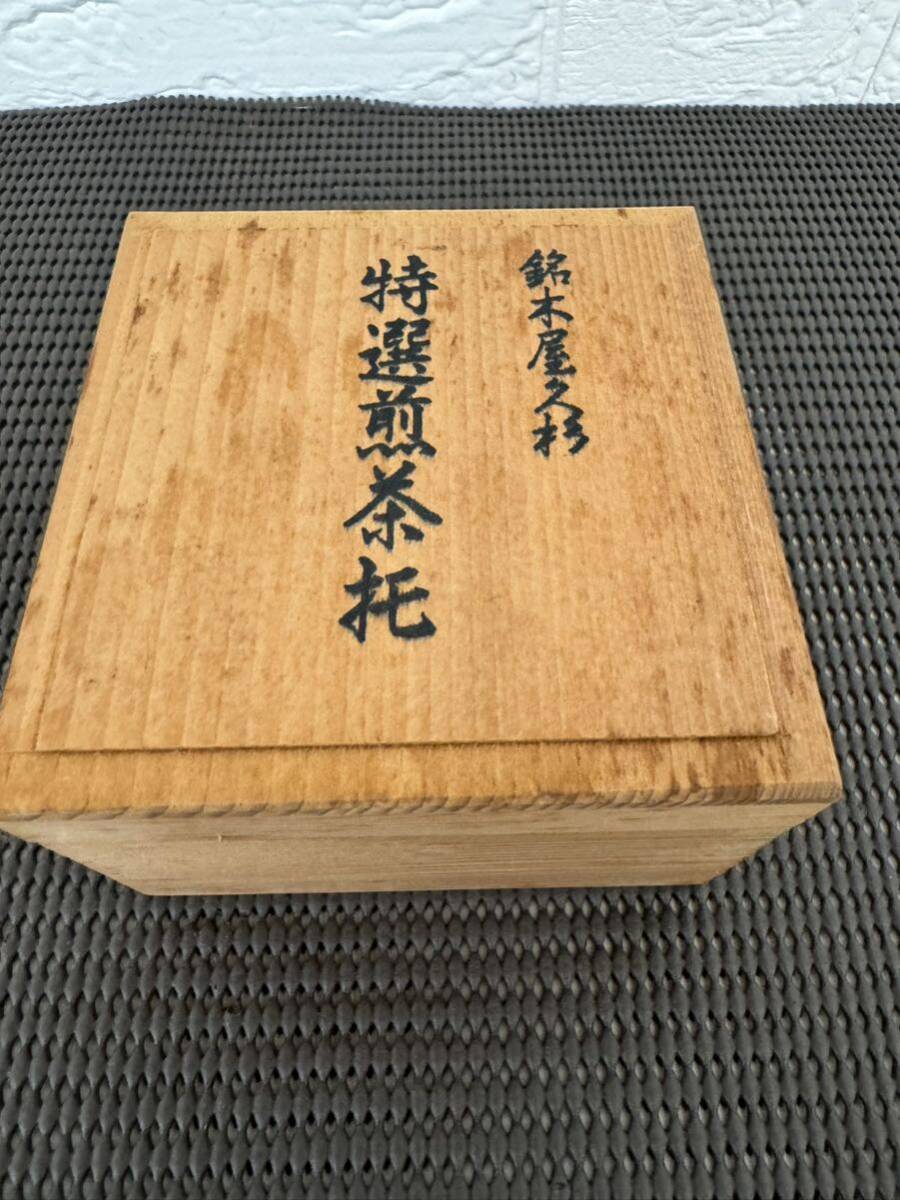 銘木屋久杉
特選煎茶托